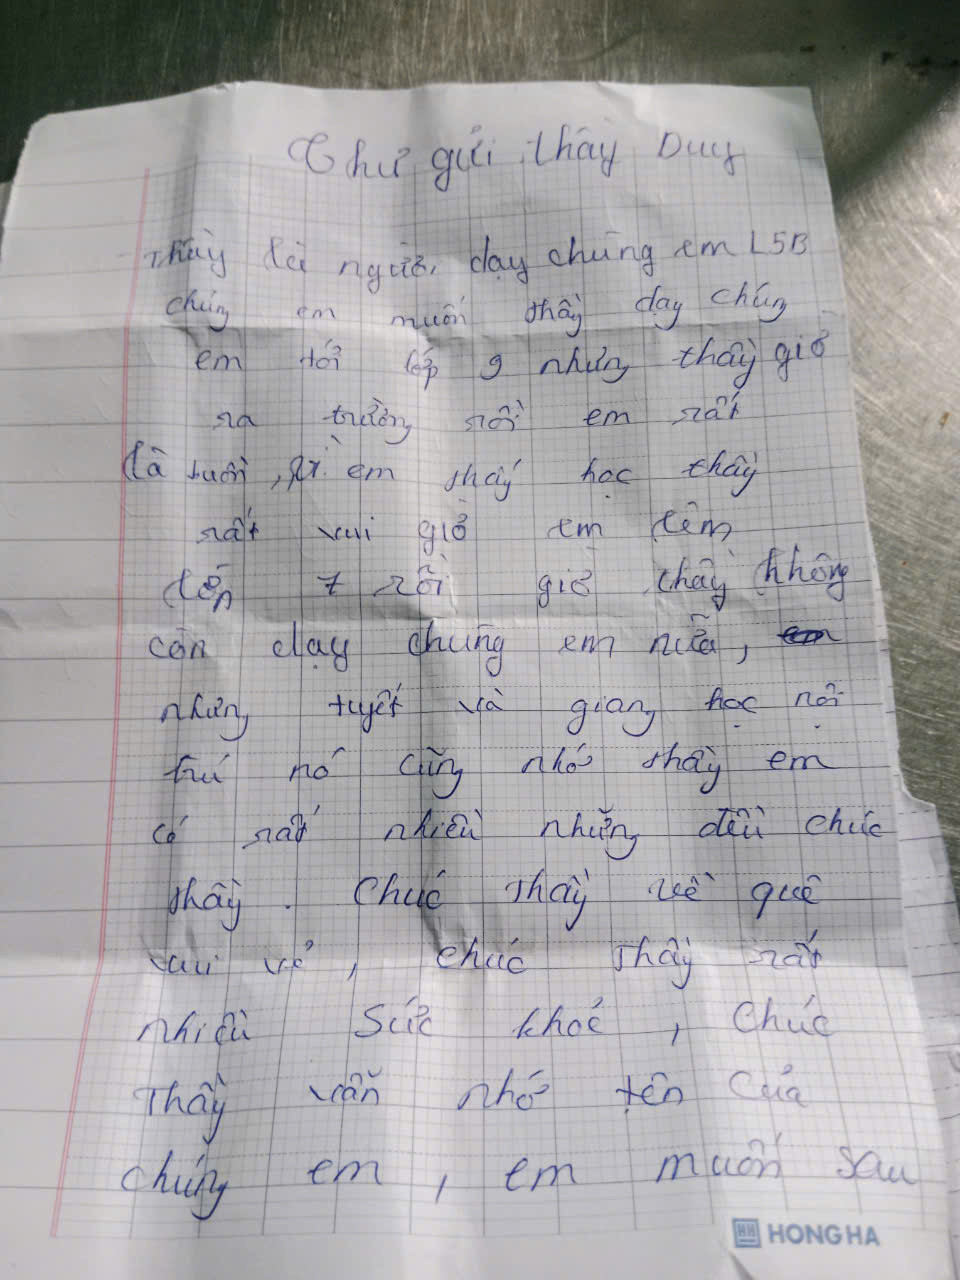 Thư gửi thầy Duy
Thầy là người dạy chúng em L5B
chúng em muốn thầy dạy chúng
em tới lớp 9 nhưng thầy giờ
ra trường rồi em rất
là buồn, vì em thấy học thầy
rất vui giờ em lêm
lớp 7 rồi giờ thầy không
còn dạy chúng em nữa,
nhưng tuyết và giang học nội
trú nó cũng nhớ thầy em
có rất nhiều những đều chúc
thầy. Chúc thầy về quê
vui vẻ, chúc thầy rất
nhiều sức khoẻ, Chúc
Thầy vẫn nhớ tên của
chúng em, em muốn sau
HONG HA